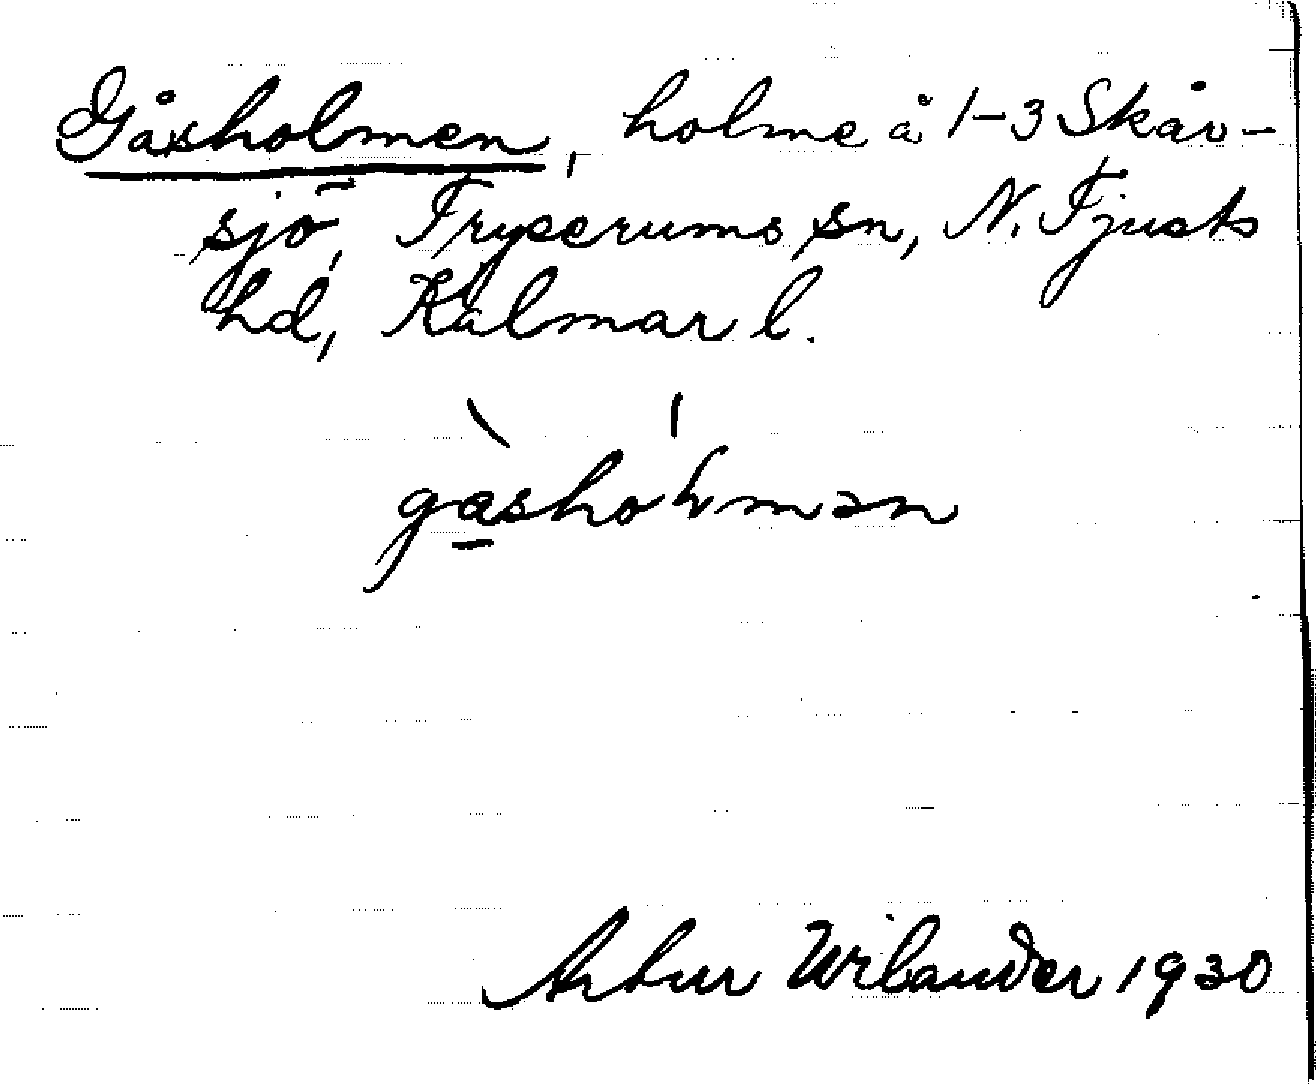 Gåsholmen, holme å 1-3 Skåv-
sjö, Tryserums sn, N. Tjusts
hd, Kalmar l.
gåshoɫmən
Artur Wilander 1930